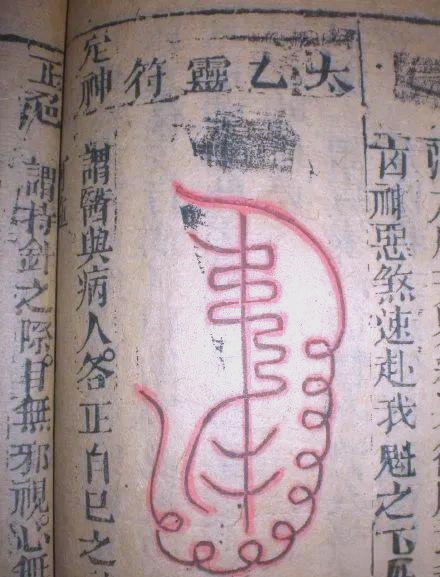 太乙靈符
凶神惡煞速赴我魁之下
定神
謂醫與病人各正自己之
正
謂持針之際目無邪視心無